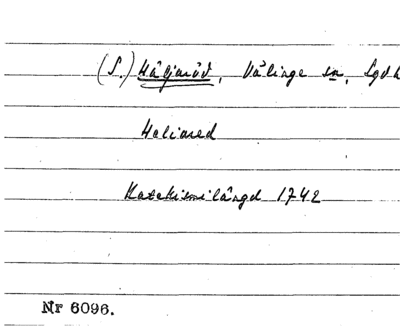 (S.) Håljaröd, Välinge sn, Lgdh
Haliared
Katekismilängd 1742
Nr 6096.